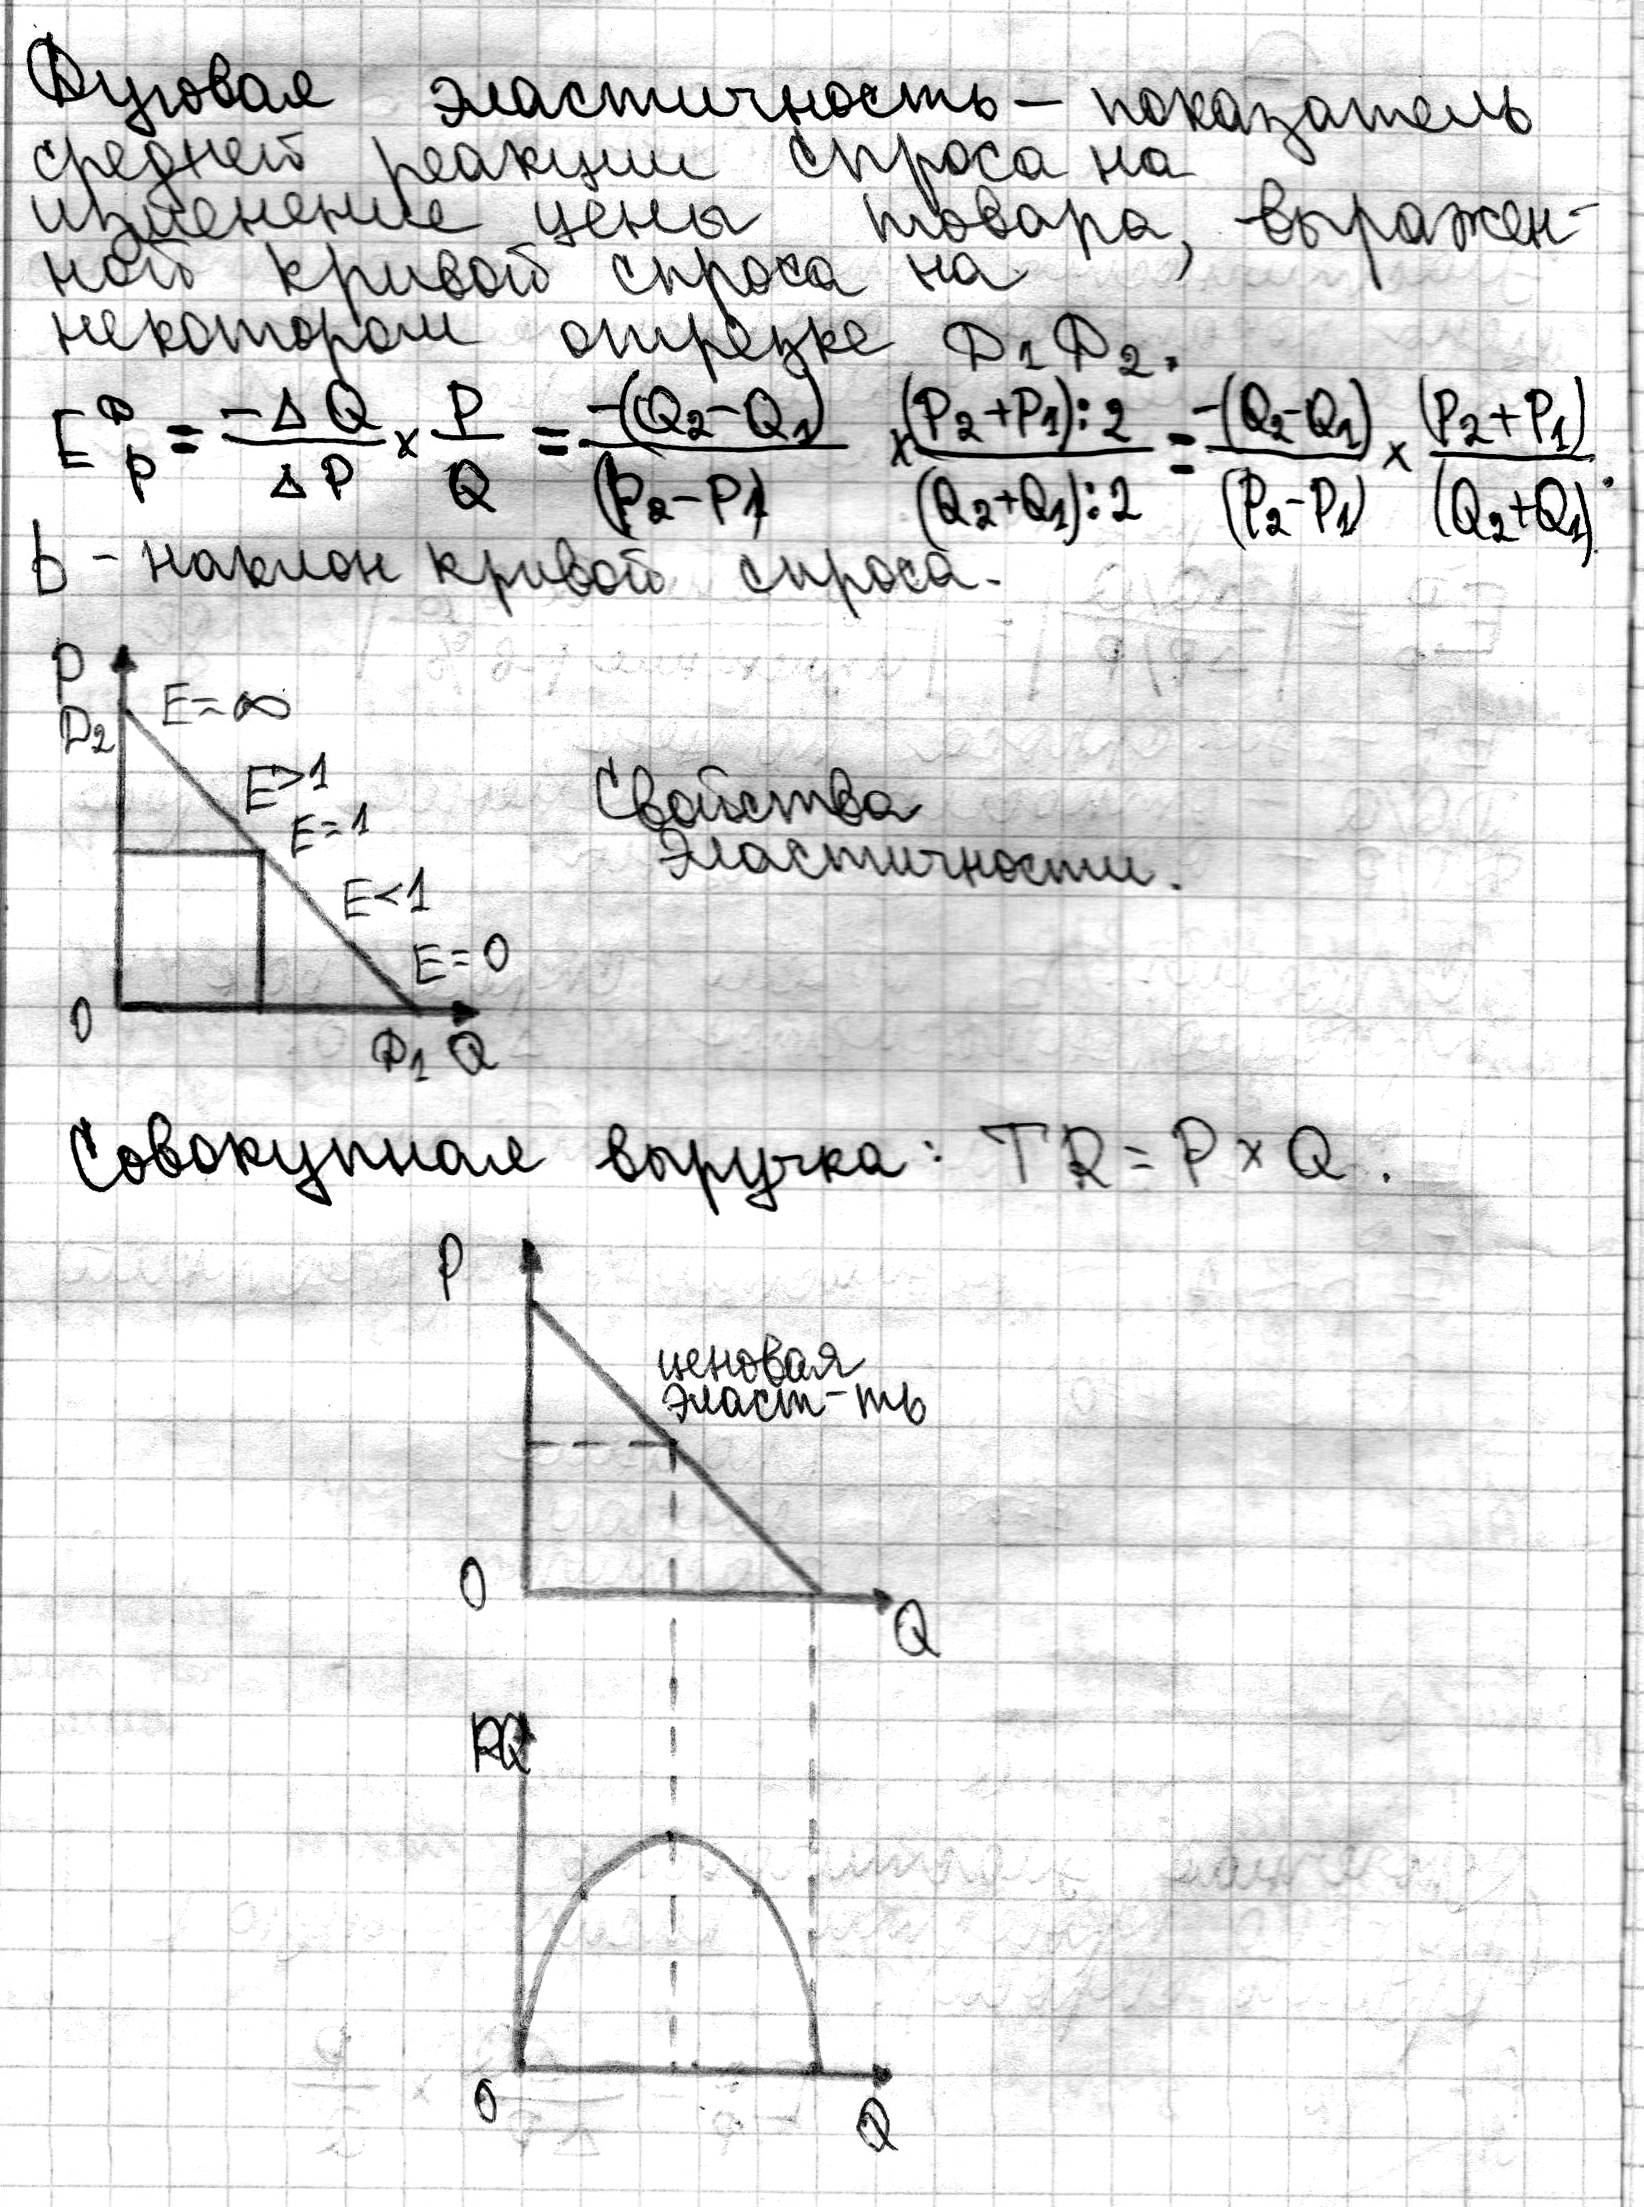 Дуговая эластичность – показатель
средней реакции спроса на
изменение цены товара, выражен-
ной кривой спроса на
некотором отрезке D₁D₂.
E^D_P = -ΔQ/ΔP × P/Q = -(Q₂-Q₁)/(P₂-P₁) × (P₂+P₁):2/(Q₂+Q₁):2 = -(Q₂-Q₁)/(P₂-P₁) × (P₂+P₁)/(Q₂+Q₁).
b - наклон кривой спроса.
P
D₂
E=∞
E>1
E=1
E<1
E=0
0
D₁ Q
Свойства
эластичности.
Совокупная выручка: TR = P × Q.
P
ценовая
эласт-ть
0
Q
PQ
0
Q